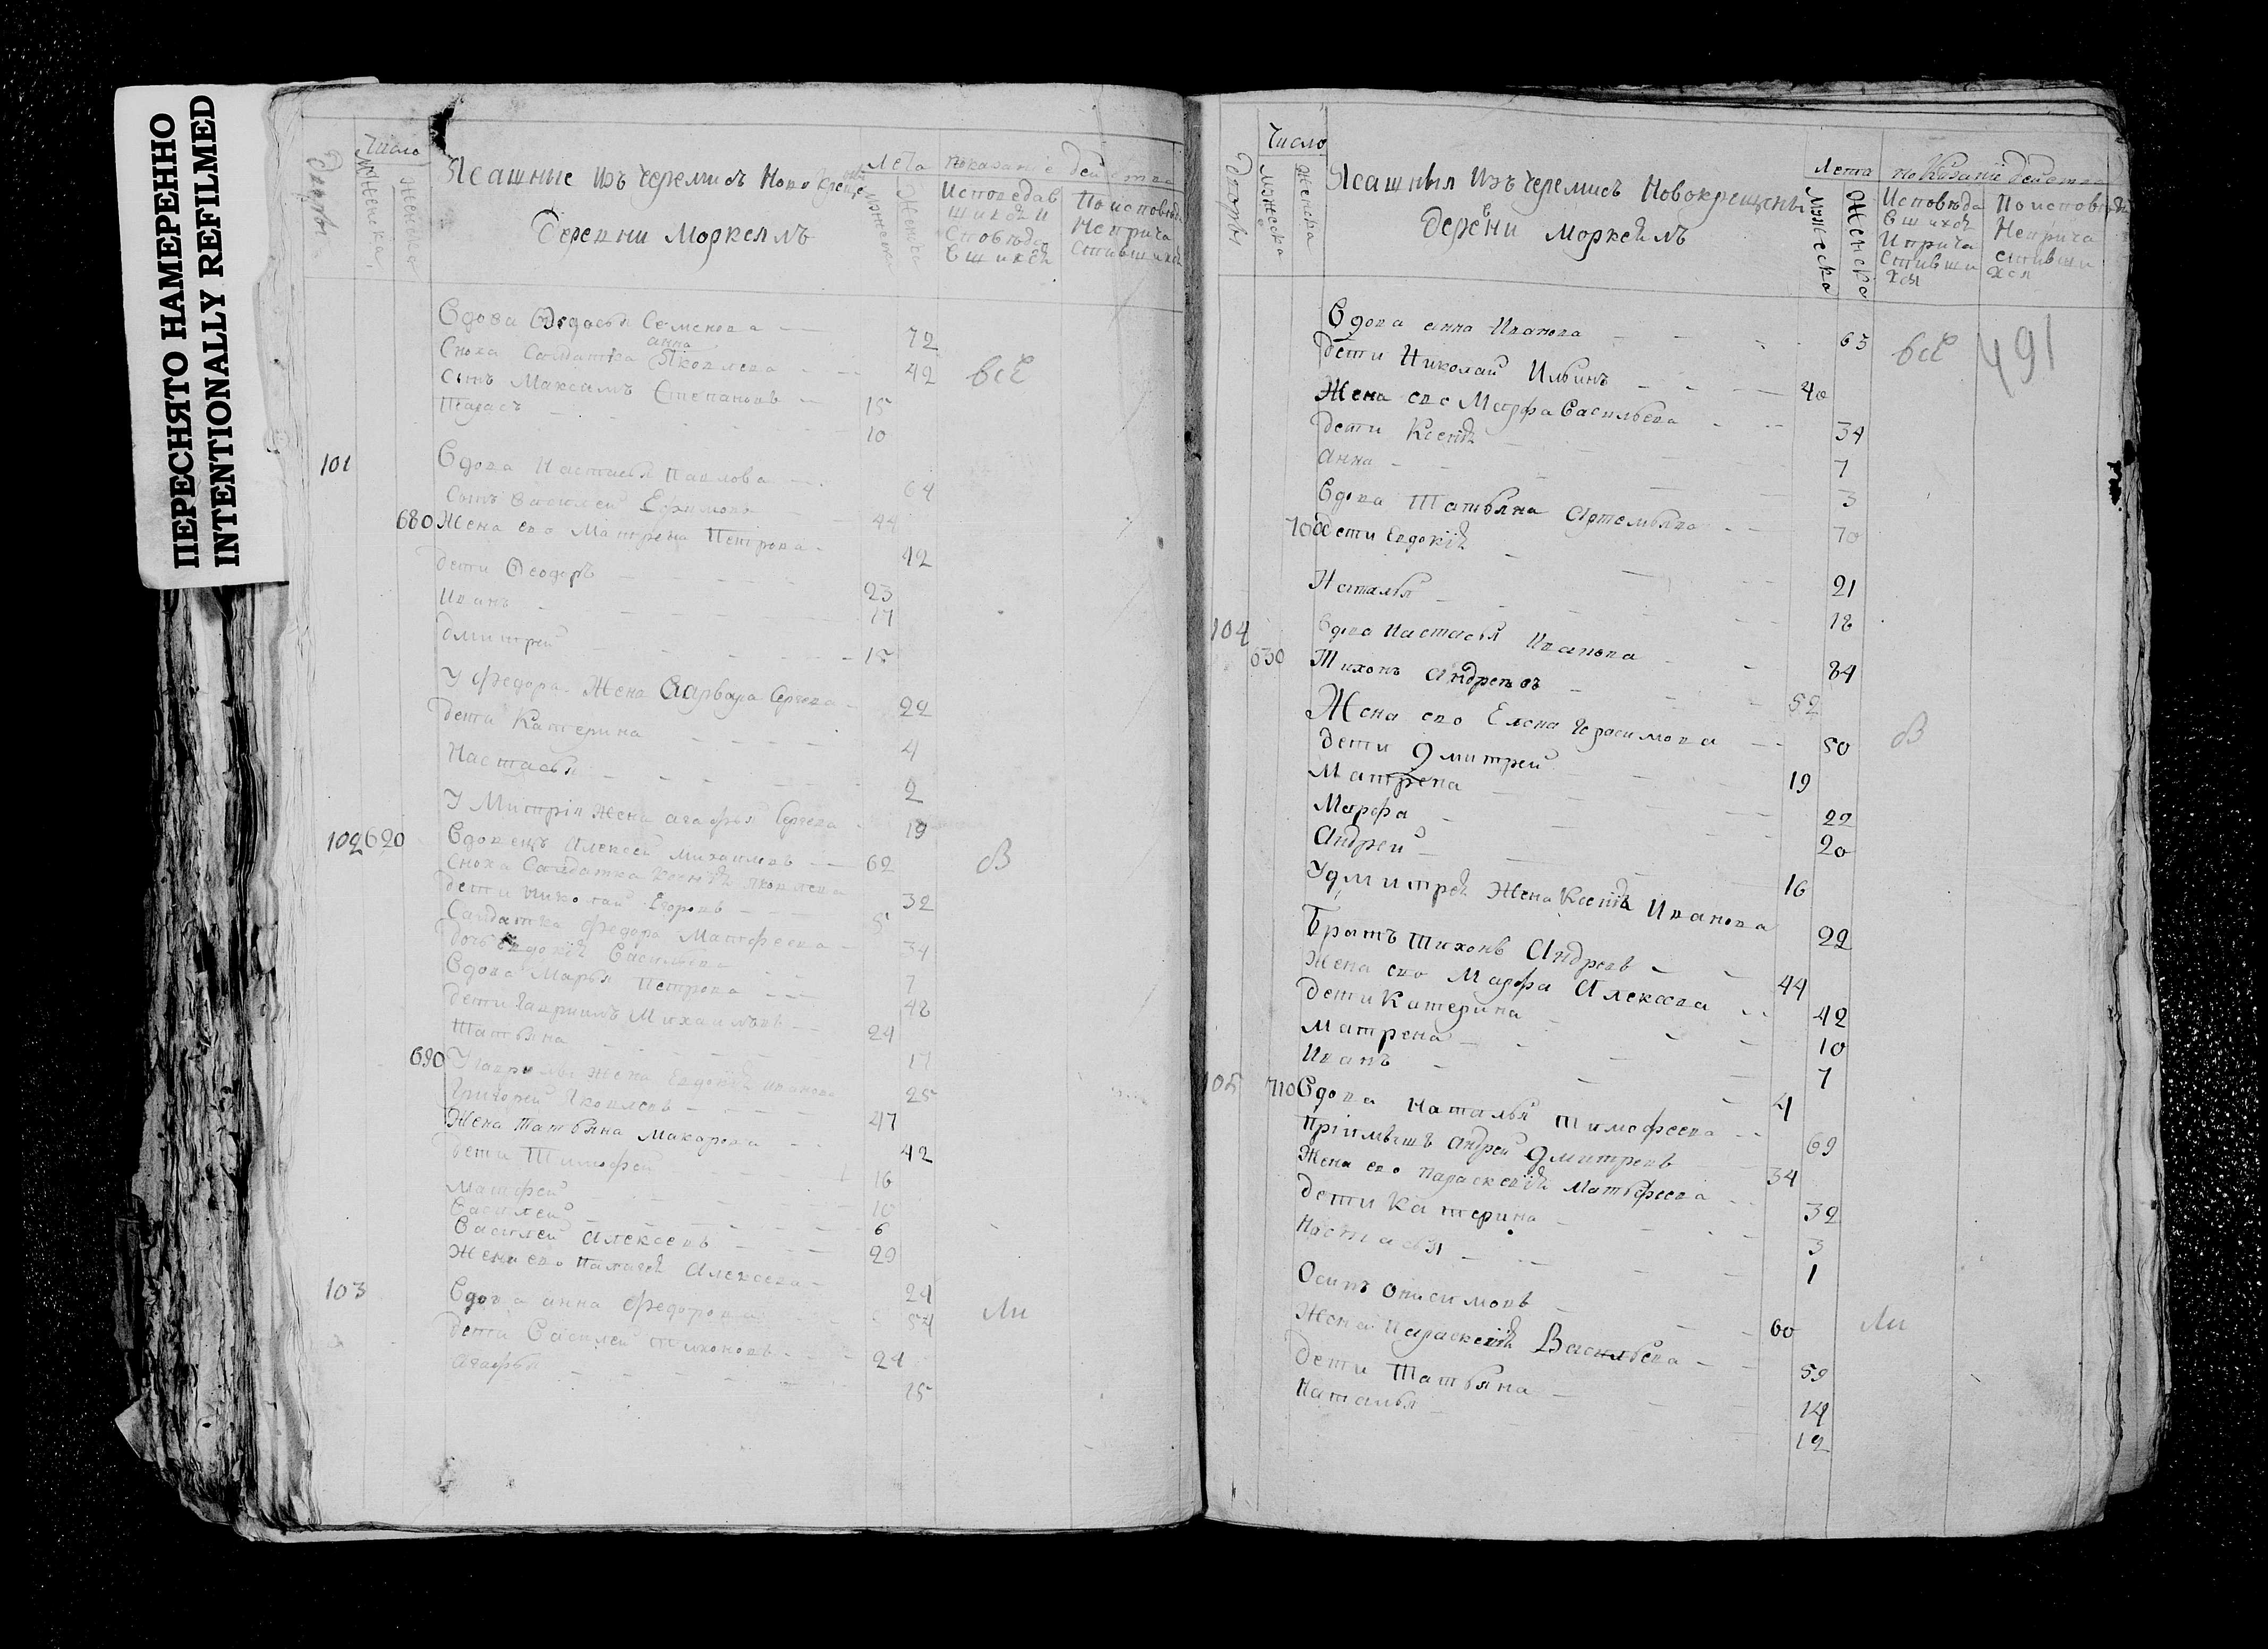 ПЕРЕСНЯТО НАМЕРЕННО
INTENTIONALLY REFILMED
Число
Дворы
Мужеска
Женска
Ясашние изъ черемисъ Новокреще
Деревни Моркеялъ
Лета
Мужеска
Женска
показание действа
Исповедав
шихся и
По исповеди
Неприча
стившихся
Вдова Федосья Семенова 72
Сноха Солдатка Анна Яковлева 42 всѣ
Сынъ Максимъ Степановъ 15
Тарасъ 10
101 Вдова Настасья Павлова 64
Сынъ Василей Ефимовъ 44
680 Жена ево Матрена Петрова 42
Дети Феодоръ 23
Иванъ 17
Дмитрей 15
У Федора Жена Варвара Сергеева 22
Дети Катерина 4
Настасья 2
У Митрія Жена Агафья Сергеева 19
102 620 Вдовецъ Алексей Михаиловъ 62 В
Сноха Солдатка Ксенія Яковлева 32
Дети Николай Егоровъ 5
Салдатка Федора Матфеева 34
Дочь Евдокія Васильева 7
Вдова Марья Петрова 48
Дети Гавриилъ Михаиловъ 24
Татьяна 17
690 У Гаврилы Жена Евдокія Иванова 25
Григорей Яковлевъ 47
Жена Татьяна Макарова 42
Дети Тимофей 16
Матфей 10
Василей 6
Василей Алексеевъ 29
Жена ево Палагея Алексеева 24
103 Вдова Анна Федорова 54 Ли
Дети Василей Тихоновъ 24
Агафья 15
Число
Дворы
Мужеска
Женска
Ясашныя изъ черемисъ Новокрещены
Деревни Моркеялъ
Лета
Мужеска
Женска
показаніе действа
Исповѣда
вшихся
и прича
стивши
хся
По исповѣди
Неприча
стивши
хся
491
Вдова Анна Иванова 63 всѣ
Дети Николай Ильинъ 40
Жена ево Марфа Васильева 34
Дети Ксенія 7
Анна 3
Вдова Татьяна Артемьева 70
700 Дети Евдокія 21
Наталья 18
104 Вдова Настасья Иванова 84
630 Тихонъ Андреевъ 52
Жена ево Елена Герасимова 50 В
Дети Дмитрей 19
Матрена 22
Марфа 20
Андрей 16
У Дмитрея Жена Ксенія Иванова 22
Братъ Тихонъ Андреевъ 44
Жена ево Марфа Алексеева 42
Дети Катерина 10
Матрена 7
Иванъ 4
105 710 Вдова Наталья Тимофеева 69
Пріимышъ Андрей Дмитреевъ 34
Жена ево Параскевія Матфеева 32
Дети Катерина 3
Настасья 1
Осипъ Онисимовъ 60 Ли
Жена Параскевія Васильева 59
Дети Татьяна 14
Наталья 12